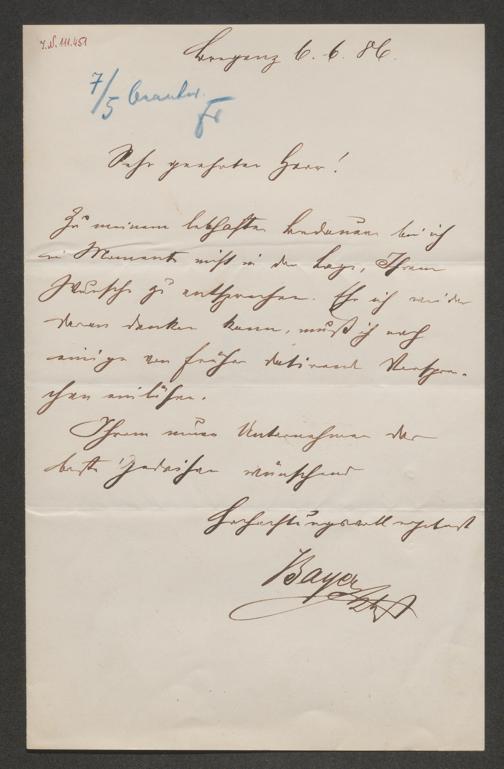 J.N. 111.451
Bregenz 6. 6. 86.
7/5 beantw.
Fr
Sehr geehrter Herr!
Zu meinem lebhaften Bedauern bin ich
im Momente nicht in der Lage, Ihrem
Wunsche zu entsprechen. Ehe ich wieder
daran denken kann, muß ich noch
einige von früher datirende Verspre-
chen einlösen.
Ihrem neuen Unternehmen das
beste Gedeihen wünschend
Hochachtungsvoll ergebenst
Bayer